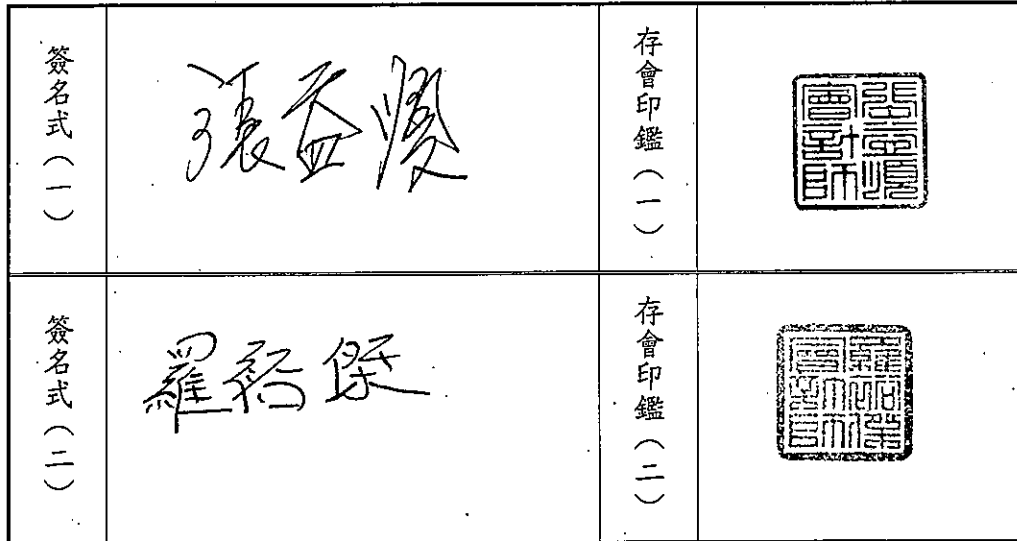 簽名式（一）
張益順
存會印鑑（一）
張益順
會計師
簽名式（二）
羅裕傑
存會印鑑（二）
羅裕傑
會計師